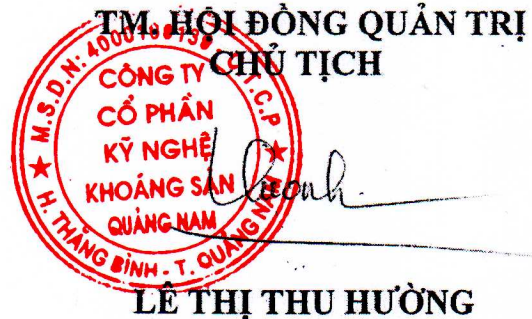 TM. HỘI ĐỒNG QUẢN TRỊ
CHỦ TỊCH
CÔNG TY
CỔ PHẦN
KỸ NGHỆ
KHOÁNG SẢN
QUẢNG NAM
M.S.D.N:
C.T.C.P
H. THĂNG BÌNH - T. QUẢNG NAM
LÊ THỊ THU HƯỜNG